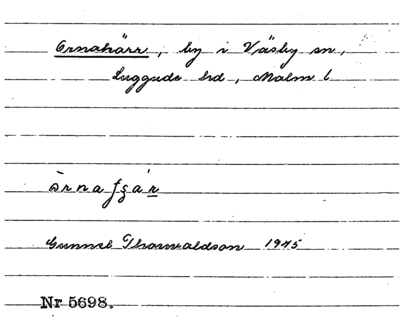 Ornakärr, by i Väsby sn,
Luggude hd, Malm l
Gunnel Thorwaldson 1945
Nr 5698.